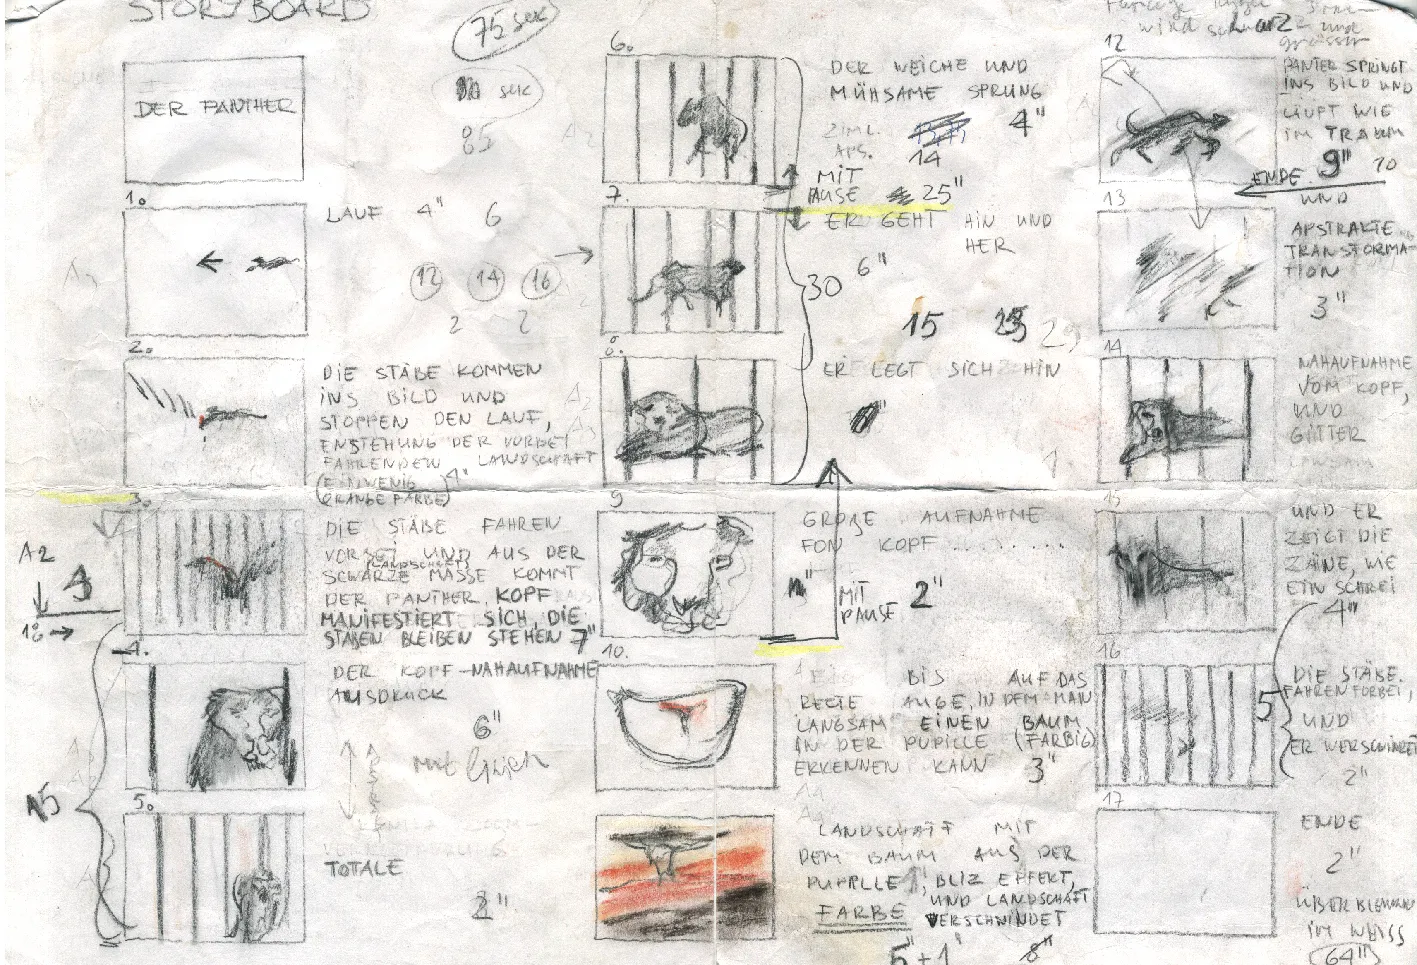 STORYBOARD
75 sek
sek
85
DER PANTHER
1.
LAUF 4" 6
12 14 16
2 2
2.
DIE STÄBE KOMMEN
INS BILD UND
STOPPEN DEN LAUF,
ENSTEHUNG DER VORBEI
FAHRENDEN LANDSCHAFT
(EINWENIG
ORANGE FARBE)
3.
A2
18
DIE STÄBE FAHREN
VORBEI UND AUS DER
(LANDSCHAFT)
SCHWARZE MASSE KOMMT
DER PANTHER. KOPF
MANIFESTIERT SICH, DIE
STÄBEN BLEIBEN STEHEN 7"
4.
DER KOPF-NAHAUFNAHME
AUSDRUCK
6"
15
5.
TOTALE
2"
6.
DER WEICHE UND
MÜHSAME SPRUNG
4"
ZIML.
APS.
14
MIT
PAUSE 25"
7.
ER GEHT HIN UND
HER
6"
30
15
29
8.
ER LEGT SICH HIN
9
GROßE AUFNAHME
FON KOPF
MIT
PAUSE 2"
10.
BIS AUF DAS
RECTE AUGE, IN DEM MAN
LANGSAM EINEN BAUM
IN DER PUPILLE (FARBIG)
ERKENNEN KANN 3"
LANDSCHAFT MIT
DEM BAUM AUS DER
PUPILLE, BLIZ EFFEKT,
UND LANDSCHAFT
FARBE VERSCHWINDET
5"+1" 8"
wird schwarz und
grösser
12
PANTER SPRINGT
INS BILD UND
LÄUFT WIE
IM TRAUM
9"
10
ENDE
13
UND
APSTRAKTE
TRANSFORMA-
TION
3"
14
NAHAUFNAHME
VOM KOPF,
UND
GITTER
15
UND ER
ZEIGT DIE
ZÄNE, WIE
EIN SCHREI
4"
16
DIE STÄBE
FAHREN FORBEI,
5
UND
ER VERSCHWINDET
2"
17
ENDE
2"
ÜBERBLENDEN
IM WEISS
(64")